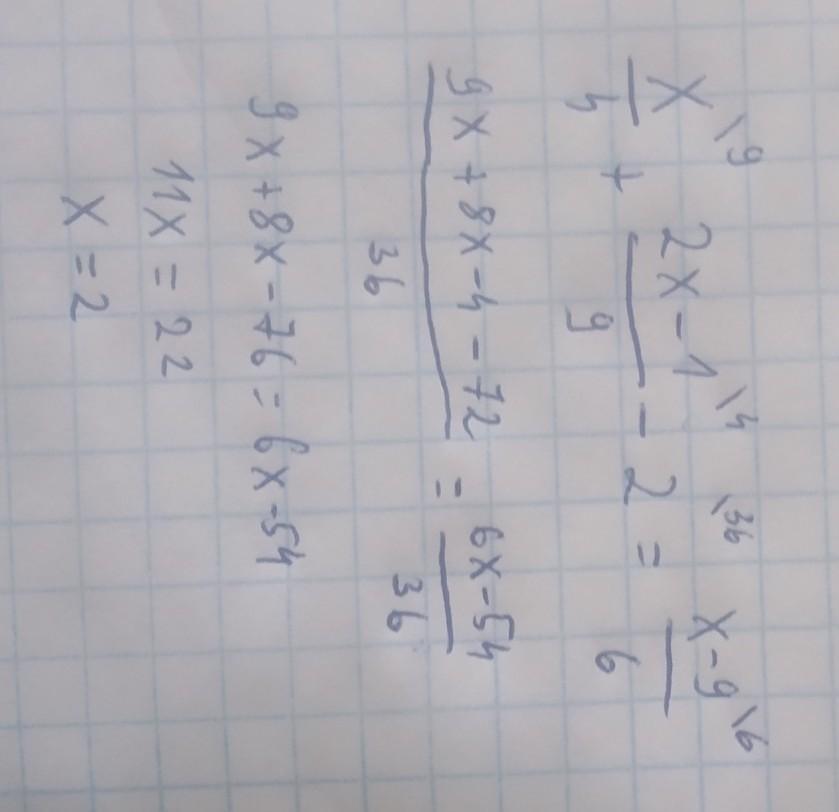 x\9/4 + 2x-1\4/9 - 2\36 = x-9\6/6
9x+8x-4-72/36 = 6x-54/36
9x+8x-76=6x-54
11x=22
x=2